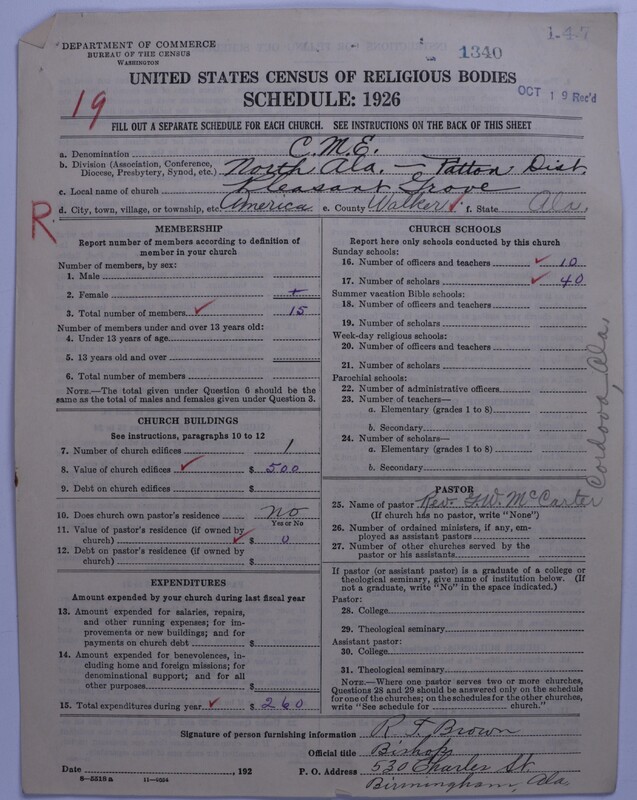 1-4-7
DEPARTMENT OF COMMERCE
BUREAU OF THE CENSUS
WASHINGTON
1340
UNITED STATES CENSUS OF RELIGIOUS BODIES
SCHEDULE: 1926
OCT 19 Rec'd
19
FILL OUT A SEPARATE SCHEDULE FOR EACH CHURCH. SEE INSTRUCTIONS ON THE BACK OF THIS SHEET
a. Denomination C.M.E.
b. Division (Association, Conference, Diocese, Presbytery, Synod, etc.) North Ala. — Patton Dist.
c. Local name of church Pleasant Grove
d. City, town, village, or township, etc. America e. County Walker ✓ f. State Ala.
R.
MEMBERSHIP
Report number of members according to definition of
member in your church
Number of members, by sex:
1. Male
2. Female +
3. Total number of members ✓ 15
Number of members under and over 13 years old:
4. Under 13 years of age
5. 13 years old and over
6. Total number of members
NOTE.—The total given under Question 6 should be
same as the total of males and females given under Question 3.
CHURCH BUILDINGS
See instructions, paragraphs 10 to 12
7. Number of church edifices 1
8. Value of church edifices ✓ $ 500
9. Debt on church edifices $
10. Does church own pastor's residence No
Yes or No
11. Value of pastor's residence (if owned by
church) ✓ $ 0
12. Debt on pastor's residence (if owned by
church) $
EXPENDITURES
Amount expended by your church during last fiscal year
13. Amount expended for salaries, repairs,
and other running expenses; for im-
provements or new buildings; and for
payments on church debt $
14. Amount expended for benevolences, in-
cluding home and foreign missions; for
denominational support; and for all
other purposes $
15. Total expenditures during year ✓ $ 260
CHURCH SCHOOLS
Report here only schools conducted by this church
Sunday schools:
16. Number of officers and teachers ✓ 10
17. Number of scholars ✓ 40
Summer vacation Bible schools:
18. Number of officers and teachers
19. Number of scholars
Week-day religious schools:
20. Number of officers and teachers
21. Number of scholars
Parochial schools:
22. Number of administrative officers
23. Number of teachers—
a. Elementary (grades 1 to 8)
b. Secondary
24. Number of scholars—
a. Elementary (grades 1 to 8)
b. Secondary
Cordova, Ala.
PASTOR
25. Name of pastor Rev. G.W. McCarter
(If church has no pastor, write "None")
26. Number of ordained ministers, if any, em-
ployed as assistant pastors
27. Number of other churches served by the
pastor or his assistants
If pastor (or assistant pastor) is a graduate of a college or
theological seminary, give name of institution below. (If
not a graduate, write "No" in the space indicated.)
Pastor:
28. College
29. Theological seminary
Assistant pastor:
30. College
31. Theological seminary
NOTE.—Where one pastor serves two or more churches,
Questions 28 and 29 should be answered only on the schedule
for one of the churches; on the schedules for the other churches,
write "See schedule for church."
Signature of person furnishing information R T Brown
Official title Bishop
Date , 192 P. O. Address 530 Charles St.
8—5518a 11—9024 Birmingham, Ala.